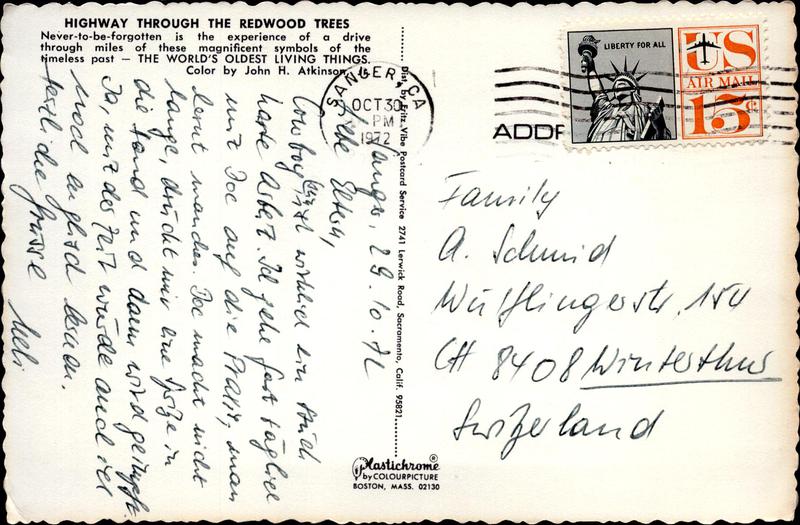 HIGHWAY THROUGH THE REDWOOD TREES
Never-to-be-forgotten is the experience of a drive
through miles of these magnificent symbols of the
timeless past — THE WORLD'S OLDEST LIVING THINGS.
Color by John H. Atkinson
SANGER, CA
OCT 30
PM
1972
ADDR
LIBERTY FOR ALL
US
AIR MAIL
15c
Sanger, 29.10.72
Liebe Eltern,
Cowboy ist wirklich ein Stück
harte Arbeit. Ich gehe fast täglich
mit Joe auf die Praxis, man
lernt manches. Joe macht nicht
lange, drückt mir eine Spize in
die Hand und dann wird geimpft.
Ja, mit der Zeit würde auch ich
noch englisch lernen.
die Grüsse
Ueli
Dist. by Fritz Vibe Postcard Service 2741 Lerwick Road, Sacramento, Calif. 95821
Plastichrome®
by COLOURPICTURE
BOSTON, MASS. 02130
Family
A. Schmid
Wülflingerstr. 154
CH 8408 Winterthur
Switzerland